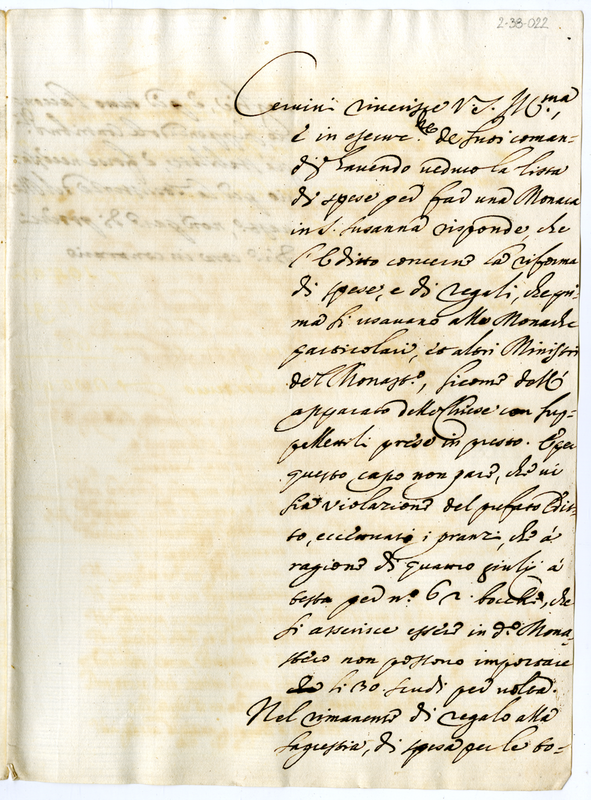 2-38-022
Cervini riverisce V.S. Ill.ma,
E in esecuz.ne de suoi coman-
di havendo veduto la lista
di spese per far una Monaca
in S. Susanna risponde che
l'Editto concerne la riforma
di spese, e di regali, che pri-
ma si usavano alle Monache
particolari, et altri Ministri
del Monast.o, sicome dell'
apparato delle Chiese con sup-
pellettili prese in presto. E per
questo capo non pare, che vi
sia violatione del prefato Edit-
to, eccettuati i pranzi, che a
ragione di quattro giulij a
testa per n.o 62 bocche, che
si asserisce essere in d.o Mona-
stero non possono importare
li 30 scudi per volta.
Nel rimanente di regalo alla
sagrestia, di spesa per le bo-